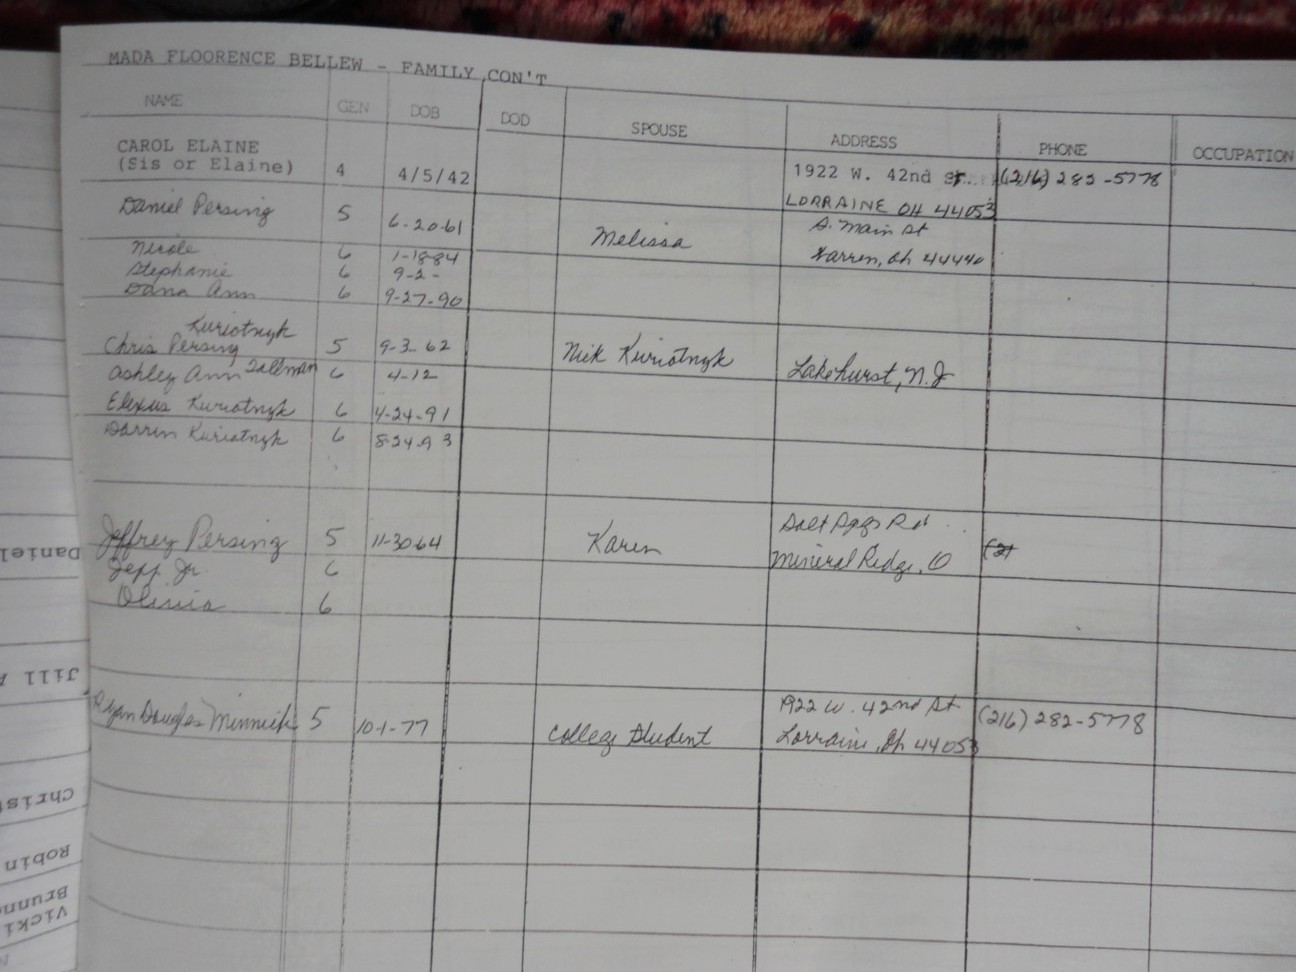 MADA FLOORENCE BELLEW - FAMILY CON'T
NAME GEN DOB DOD SPOUSE ADDRESS PHONE OCCUPATION
CAROL ELAINE
(Sis or Elaine) 4 4/5/42 1922 W. 42nd St. (216) 282-5778
LORRAINE OH 44053
Daniel Persing 5 6-20-61 Melissa S. Main St
Nicole 6 1-18-84 Warren, Oh 44440
Stephanie 6 9-2-
Dana Ann 6 9-27-90
Kuriotnyk
Chris Persing 5 9-3-62 Nick Kuriotnyk Lakehurst, N.J
Ashley Ann Tallman 6 4-12
Elexus Kuriotnyk 6 4-24-91
Darren Kuriotnyk 6 8-24-93
Jeffrey Persing 5 11-30-64 Karen Salt Spgs Rd
Mineral Ridge, O (21
Jeff Jr. 6
Olivia 6
Ryan Douglas Minnick 5 10-1-77 College Student 1922 W. 42nd St (216) 282-5778
Lorraine, Oh 44053
Daniel
Jill
Christ
Robin
Brunn
Vicki